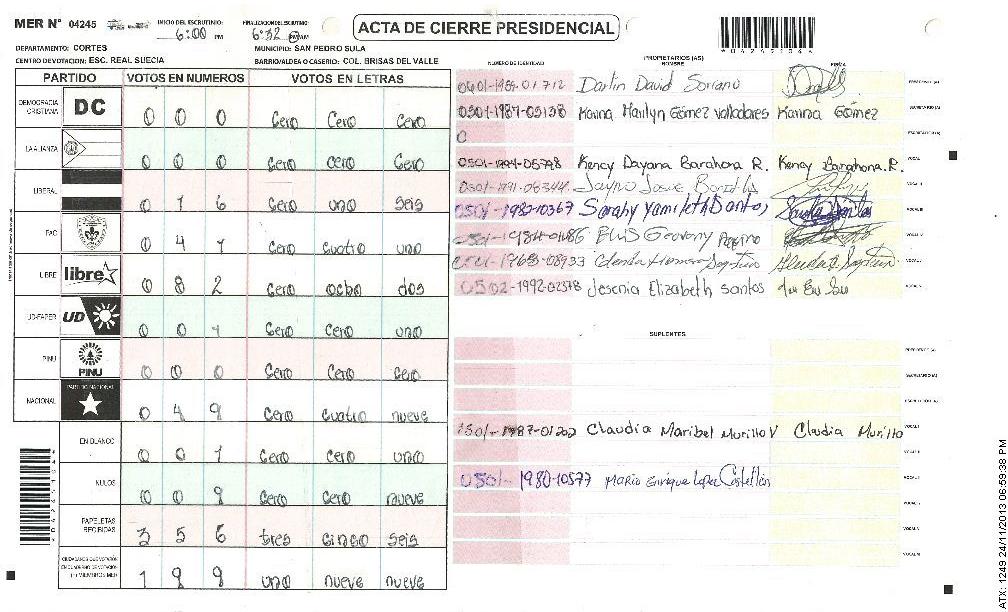 MER N° 04245 INICIO DEL ESCRUTINIO: 6:00 PM FINALIZACION DEL ESCRUTINIO: 6:32 PM
ACTA DE CIERRE PRESIDENCIAL
DEPARTAMENTO: CORTES MUNICIPIO: SAN PEDRO SULA
CENTRO DE VOTACION: ESC. REAL SUECIA BARRIO/ALDEA O CASERIO: COL. BRISAS DEL VALLE
PARTIDO VOTOS EN NUMEROS VOTOS EN LETRAS
DEMOCRACIA CRISTIANA DC 0 0 0 Cero Cero Cero
LA ALIANZA 0 0 0 Cero Cero Cero
LIBERAL 0 1 6 Cero uno seis
PAC 0 4 1 Cero cuatro uno
LIBRE libre 0 8 2 Cero ocho dos
UD-FAPER UD 0 0 1 Cero Cero uno
PINU PINU 0 0 0 Cero Cero Cero
NACIONAL PARTIDO NACIONAL 0 4 9 Cero cuatro nueve
EN BLANCO 0 0 1 Cero Cero uno
NULOS 0 0 9 Cero Cero nueve
PAPELETAS RECIBIDAS 3 5 6 tres cinco seis
CIUDADANOS QUE VOTARON 1 9 9 uno nueve nueve
NUMERO DE IDENTIDAD PROPIETARIOS (AS) NOMBRE FIRMA
0401-1984-01712 Darlin David Soriano
0501-1987-05138 Karina Marilyn Gómez Valladares Karina Gómez
0
0501-1994-05798 Kency Dayana Barahona R. Kency Barahona.R.
0501-1991-06344
0501-1982-10367 Sarahy Yamileth Santos
Geovany
0502-1992-02378 Jesenia Elizabeth Santos
SUPLENTES
1501-1987-01202 Claudia Maribel Murillo V Claudia Murillo
0501-1980-10577 Mario Enrique Lopez Castellon
ATX: 1249 24/11/2013 06:59:38 PM